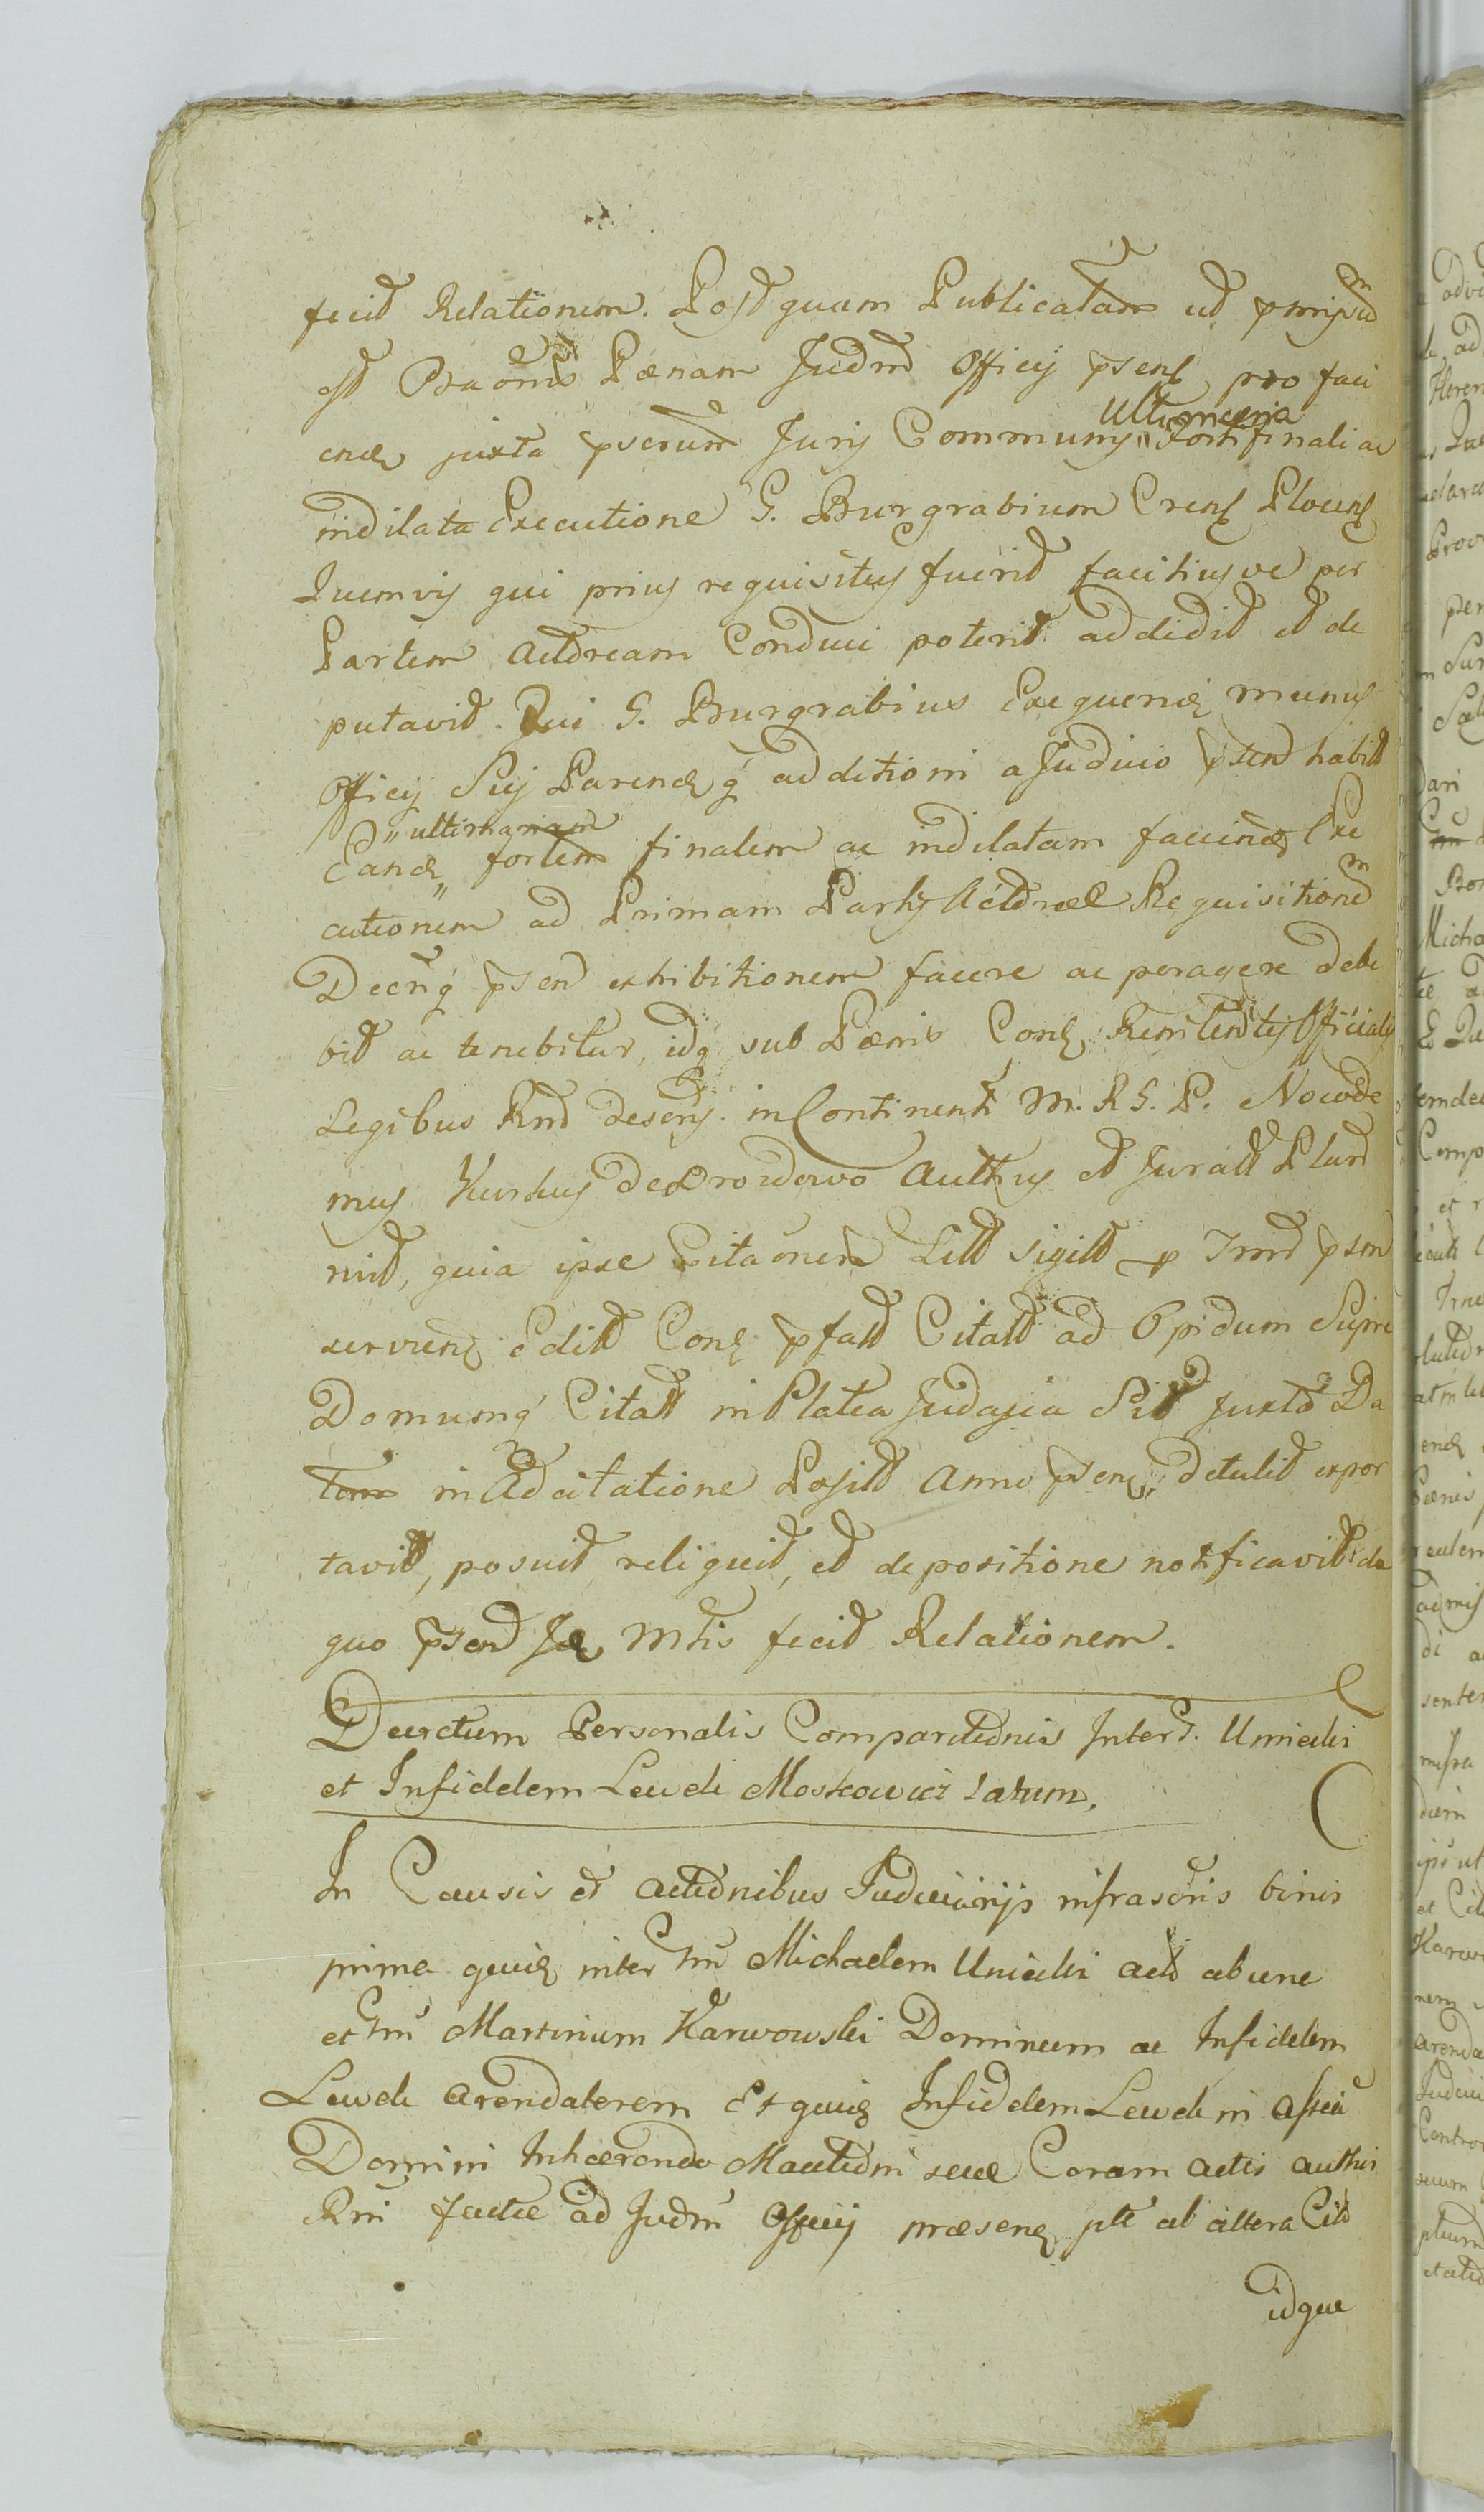 fecit Relationem. Postquam Publicatam ut pmism
est Bannis Pœnam Judm Officij psens pro faci
enda juxta pserum Juris Communis ultimaria forti finali ac
indilata Executione G. Burgrabium Crens Plocens
Quemvis qui prius requisitus fuerit facilius ve per
Partem Actoream Conduci poterit addidit et de
putavit. Qui G. Burgrabius Exequendi munus
Officij Sui Parendo q additioni a Judicio psen habit
Eand ultimariam fortem finalem ac indilatam faciend Exe
cutionem ad Primam Partis Actoreæ Requisitionem
Decrq psen exhibitionem facere ac peragere debe
bit ac tenebitur, idq sub Pœnis Cons Remitentes Officiales
Legibus Rni descrs. in Continenti M. R G. P. Nowode
mus de Drozdowo Authus et Juratt
nuit, quia ipse Citaonem Litt sigitt p Imd psm
serviens Editt Cons pfatt Citatt ad Opidum Supre
Domumq Citatt in Platea Judaica Sit Juxta Da
tam in Adcitatione Posit Anno psens detulit expor
tavit, posuit, reliquit, et de positione notificavit de
quo psend Je Mtis fecit Relationem.
Decretum Personalis Comparitionis Inter G. Umicki
et Infidelem Lewek Moskowicz latum.
In Causis et actionibus Judiciarijs infrascris binis
prima quid inter Gm Michaelem Umicki act ab una
et Gm Martinum Karwowski Dominum ac Infidelem
Lewek arendatorem Et quid Infidelem Lewek in assia
Domini Inhærendo Mactioni suæ Coram actis authis
Rni factæ ad Judm Officij præsens pte ab altera Citt
idque